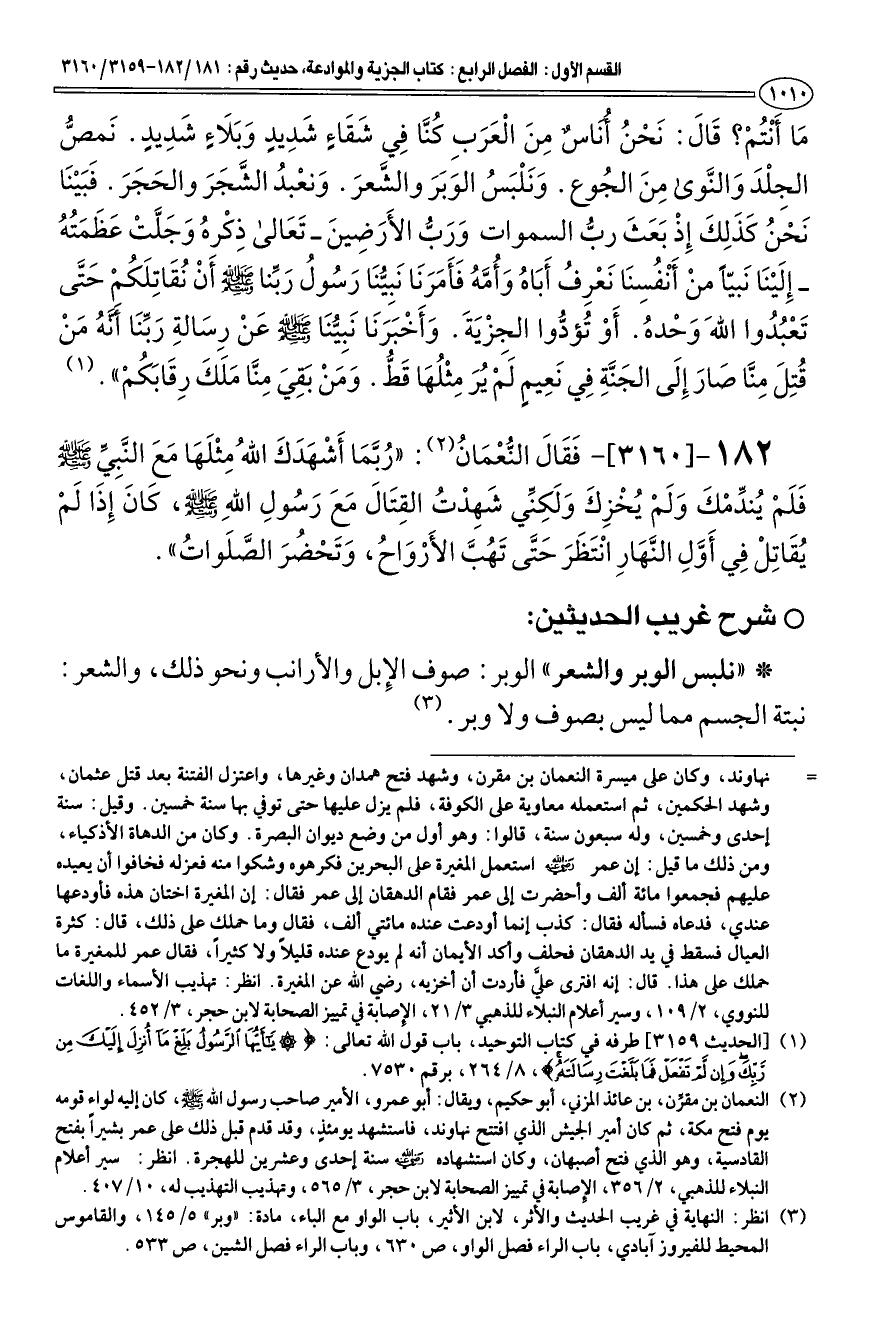 القسم الأول: الفصل الرابع: كتاب الجزية والموادعة، حديث رقم: ١٨٢/١٨١-٣١٦٠/٣١٥٩
١٠١٠
مَا أَنْتُمْ؟ قَالَ: نَحْنُ أُنَاسٌ مِنَ الْعَرَبِ كُنَّا فِي شَقَاءٍ شَدِيدٍ وَبَلَاءٍ شَدِيدٍ. نَمصُّ
الجِلْدَ وَالنَّوىٰ مِنَ الجُوع. وَنَلْبَسُ الوَبَرَ والشَّعرَ. وَنعْبدُ الشَّجَرَ والحَجَرَ. فَبَيْنَا
نَحْنُ كَذَلِكَ إِذْ بَعَثَ ربُّ السموات وَرَبُّ الأَرَضِينَ ـ تَعَالىٰ ذِكْرهُ وَجَلَّتْ عَظَمَتُهُ
ـ إِلَيْنَا نَبيّاً منْ أَنْفُسِنَا نَعْرِفُ أَبَاهُ وَأُمَّهُ فَأَمَرَنَا نَبيُّنَا رَسُولُ رَبِّنا ﷺ أَنْ نُقَاتِلَكُمْ حَتَّى
تَعْبُدُوا اللهَ وَحْدهُ. أَوْ تُؤدُّوا الجِزْيَةَ. وَأَخْبَرَنَا نَبيُّنَا ﷺ عَنْ رِسَالةِ رَبِّنَا أَنَّهُ مَنْ
قُتِلَ مِنَّا صَارَ إِلَى الجَنَّةِ فِي نَعِيمٍ لَمْ يُرَ مِثْلُهَا قَطُّ. وَمَنْ بَقِيَ مِنَّا مَلَكَ رِقَابَكُمْ». (١)
١٨٢-[٣١٦٠]- فَقَالَ النُّعْمَانُ(٢): «رُبَّمَا أَشْهَدَكَ اللهُ مِثْلَهَا مَعَ النَّبِيِّ ﷺ
فَلَمْ يُندِّمْكَ وَلَمْ يُخْزِكَ وَلَكِنِّي شَهِدْتُ القِتَالَ مَعَ رَسُولِ اللهِ ﷺ، كَانَ إِذَا لَمْ
يُقَاتِلْ فِي أَوَّلِ النَّهَارِ انْتَظَرَ حَتَّى تَهُبَّ الأَرْوَاحُ، وَتَحْضُرَ الصَّلَواتُ».
○ شرح غريب الحديثين:
* «نلبس الوبر والشعر» الوبر: صوف الإبل والأرانب ونحو ذلك، والشعر:
نبتة الجسم مما ليس بصوف ولا وبر. (٣)
= نهاوند، وكان على ميسرة النعمان بن مقرن، وشهد فتح همدان وغيرها، واعتزل الفتنة بعد قتل عثمان،
وشهد الحكمين، ثم استعمله معاوية على الكوفة، فلم يزل عليها حتى توفي بها سنة خمسين. وقيل: سنة
إحدى وخمسين، وله سبعون سنة، قالوا: وهو أول من وضع ديوان البصرة. وكان من الدهاة الأذكياء،
ومن ذلك ما قيل: إن عمر رضي الله عنه استعمل المغيرة على البحرين فكرهوه وشكوا منه فعزله فخافوا أن يعيده
عليهم فجمعوا مائة ألف وأحضرت إلى عمر فقام الدهقان إلى عمر فقال: إن المغيرة اختان هذه فأودعها
عندي، فدعاه فسأله فقال: كذب إنما أودعت عنده مائتي ألف، فقال وما حملك على ذلك، قال: كثرة
العيال فسقط في يد الدهقان فحلف وأكد الأيمان أنه لم يودع عنده قليلاً ولا كثيراً، فقال عمر للمغيرة ما
حملك على هذا. قال: إنه افترى عليَّ فأردت أن أخزيه، رضي الله عن المغيرة. انظر: تهذيب الأسماء واللغات
للنووي، ١٠٩/٢، وسير أعلام النبلاء للذهبي ٢١/٣، الإصابة في تمييز الصحابة لابن حجر، ٤٥٢/٣.
(١) [الحديث ٣١٥٩] طرفه في كتاب التوحيد، باب قول الله تعالى: ﴿ ۞ يَٰٓأَيُّهَا ٱلرَّسُولُ بَلِّغْ مَآ أُنزِلَ إِلَيْكَ مِن
رَّبِّكَۖ وَإِن لَّمْ تَفْعَلْ فَمَا بَلَّغْتَ رِسَالَتَهُۥ﴾، ٢٦٤/٨، برقم ٧٥٣٠.
(٢) النعمان بن مقرِّن، بن عائذ المزني، أبو حكيم، ويقال: أبو عمرو، الأمير صاحب رسول الله ﷺ، كان إليه لواء قومه
يوم فتح مكة، ثم كان أمير الجيش الذي افتتح نهاوند، فاستشهد يومئذٍ، وقد قدم قبل ذلك على عمر بشيراً بفتح
القادسية، وهو الذي فتح أصبهان، وكان استشهاده رضي الله عنه سنة إحدى وعشرين للهجرة. انظر: سير أعلام
النبلاء للذهبي، ٣٥٦/٢، الإصابة في تمييز الصحابة لابن حجر، ٥٦٥/٣، وتهذيب التهذيب له، ٤٠٧/١٠.
(٣) انظر: النهاية في غريب الحديث والأثر، لابن الأثير، باب الواو مع الباء، مادة: «وبر» ١٤٥/٥، والقاموس
المحيط للفيروز آبادي، باب الراء فصل الواو، ص ٦٣٠، وباب الراء فصل الشين، ص ٥٣٣.